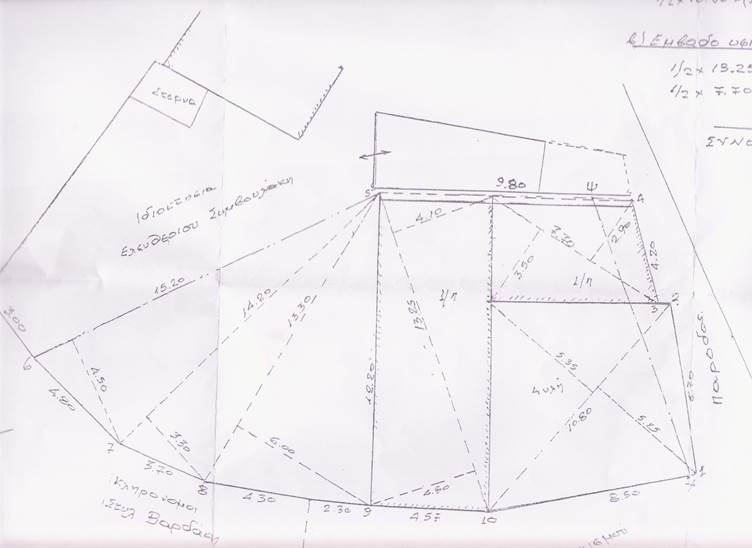 β) Εμβαδο
1/2 × 13.25
1/2 × 7.70
ΣΥΝΟ
Στερνα
Ιδιοκτησια
Ελευθεριου Συμβουλακη
9.80
Ψ
5
4
4.10
7.70
2.90
4.20
3.50
15.20
14.20
13.30
13.25
1/π
1/π
3
2
3.00
6
4.50
4.80
18.20
5.35
Αυλη
10.80
5.25
6.70
Παροδος
7
3.30
3.70
6.00
8
4.30
2.30
9
4.80
4.57
10
8.50
1
Κληρονομοι
Στυλ Βαρδα